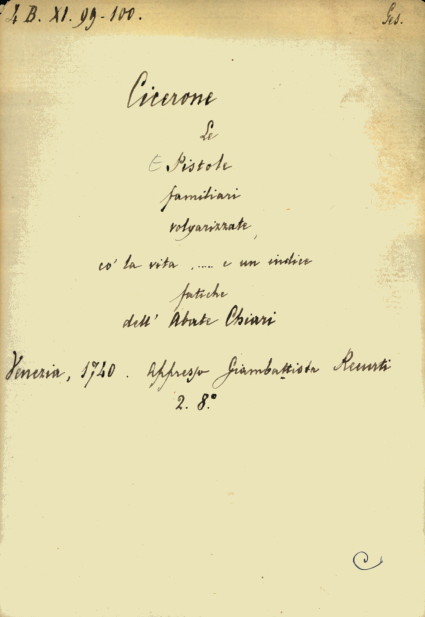 4 B. XI. 99-100.
Ges.
Cicerone
Le
EPistole
familiari
volgarizzate,
co' la vita ..... e un indice
fatiche
dell' Abate Chiari
Venezia, 1740. appresso Giambattista Recurti
2. 8.°
C